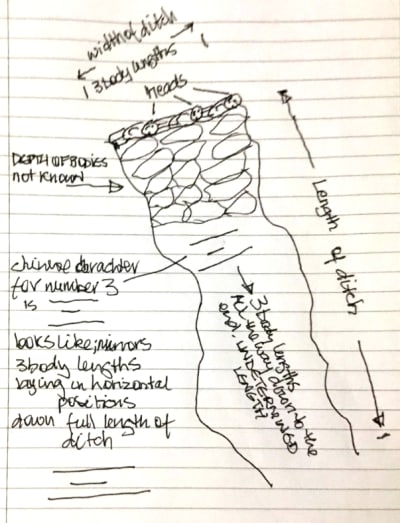 width of ditch
3 body lengths
heads
DEPTH OF BODIES
not known
Length of ditch
chinese character
for number 3
is 三
looks like; mirrors
3 body lengths
laying in horizontal
positions
down full length of
ditch
三
三
3 body lengths
all the way down to the
end, UNDETERMINED
LENGTH